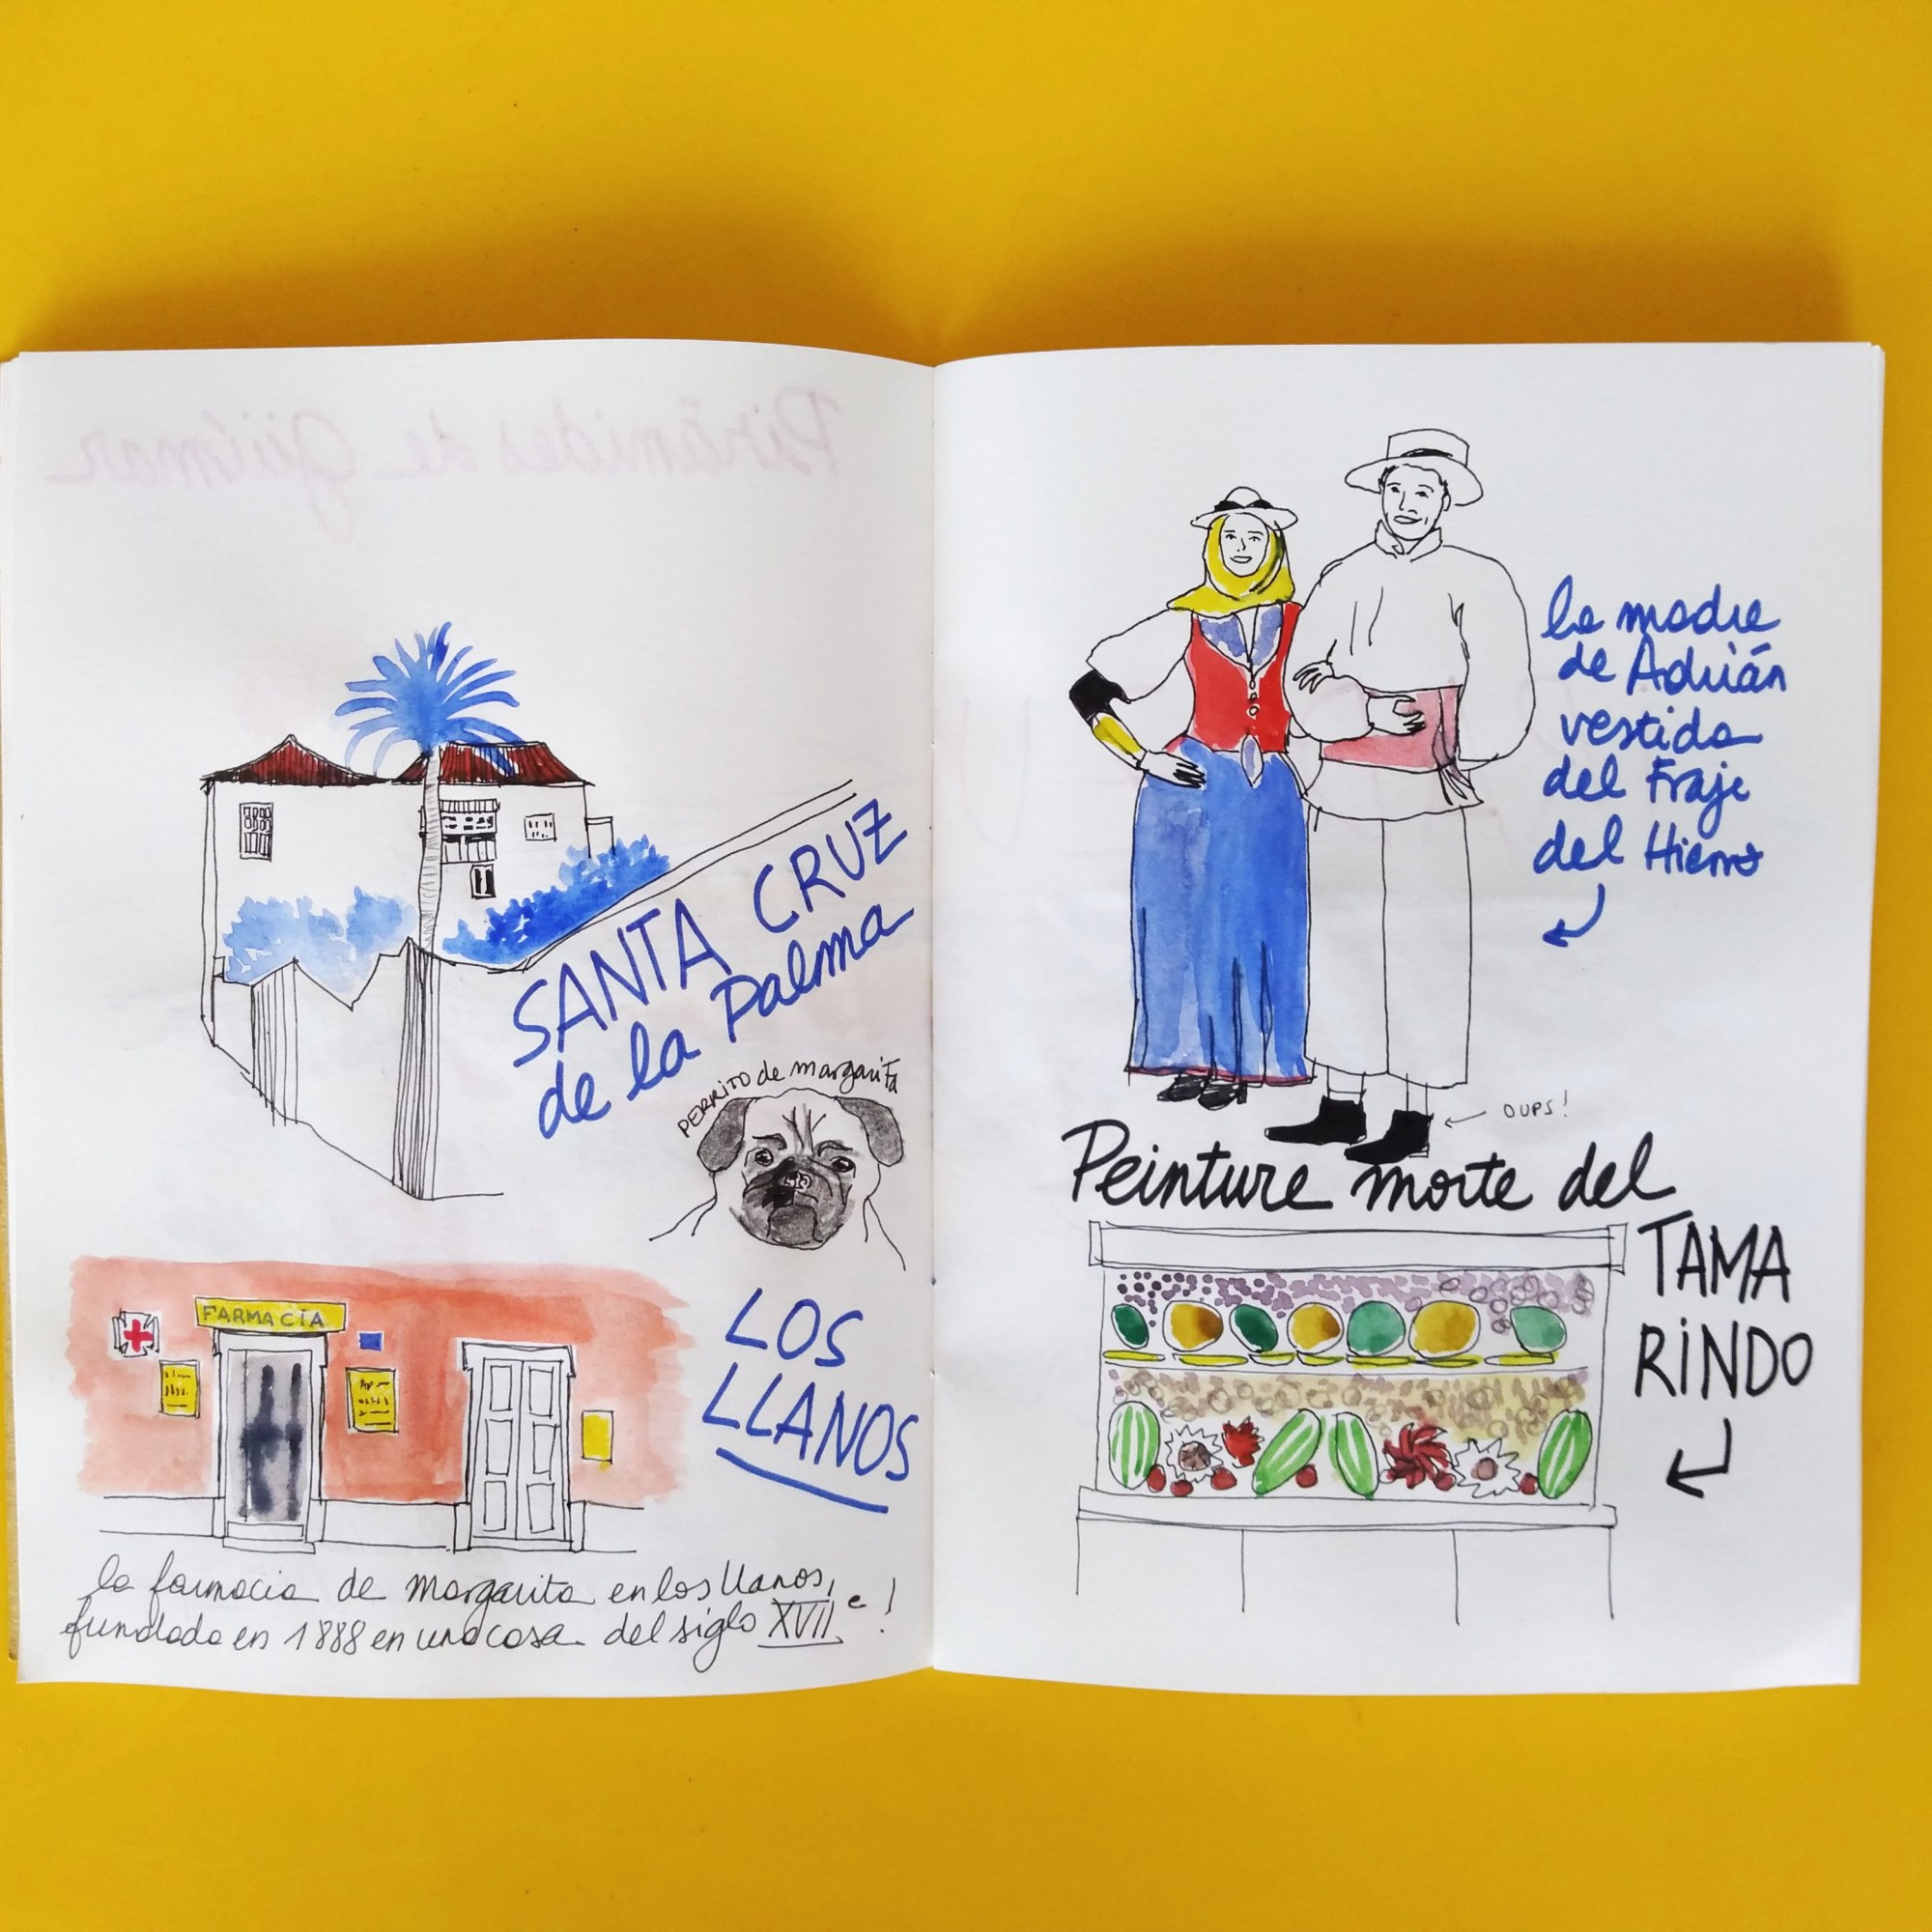 Pirámides de Güímar
SANTA CRUZ
de la Palma
PERRITO de margarita
FARMACIA
LOS
LLANOS
la farmacia de margarita en los llanos,
fundada en 1888 en una casa del siglo XVII e!
la madre
de Adrián
vestida
del Traje
del Hierro
OUPS!
Peinture morte del
TAMA
RINDO